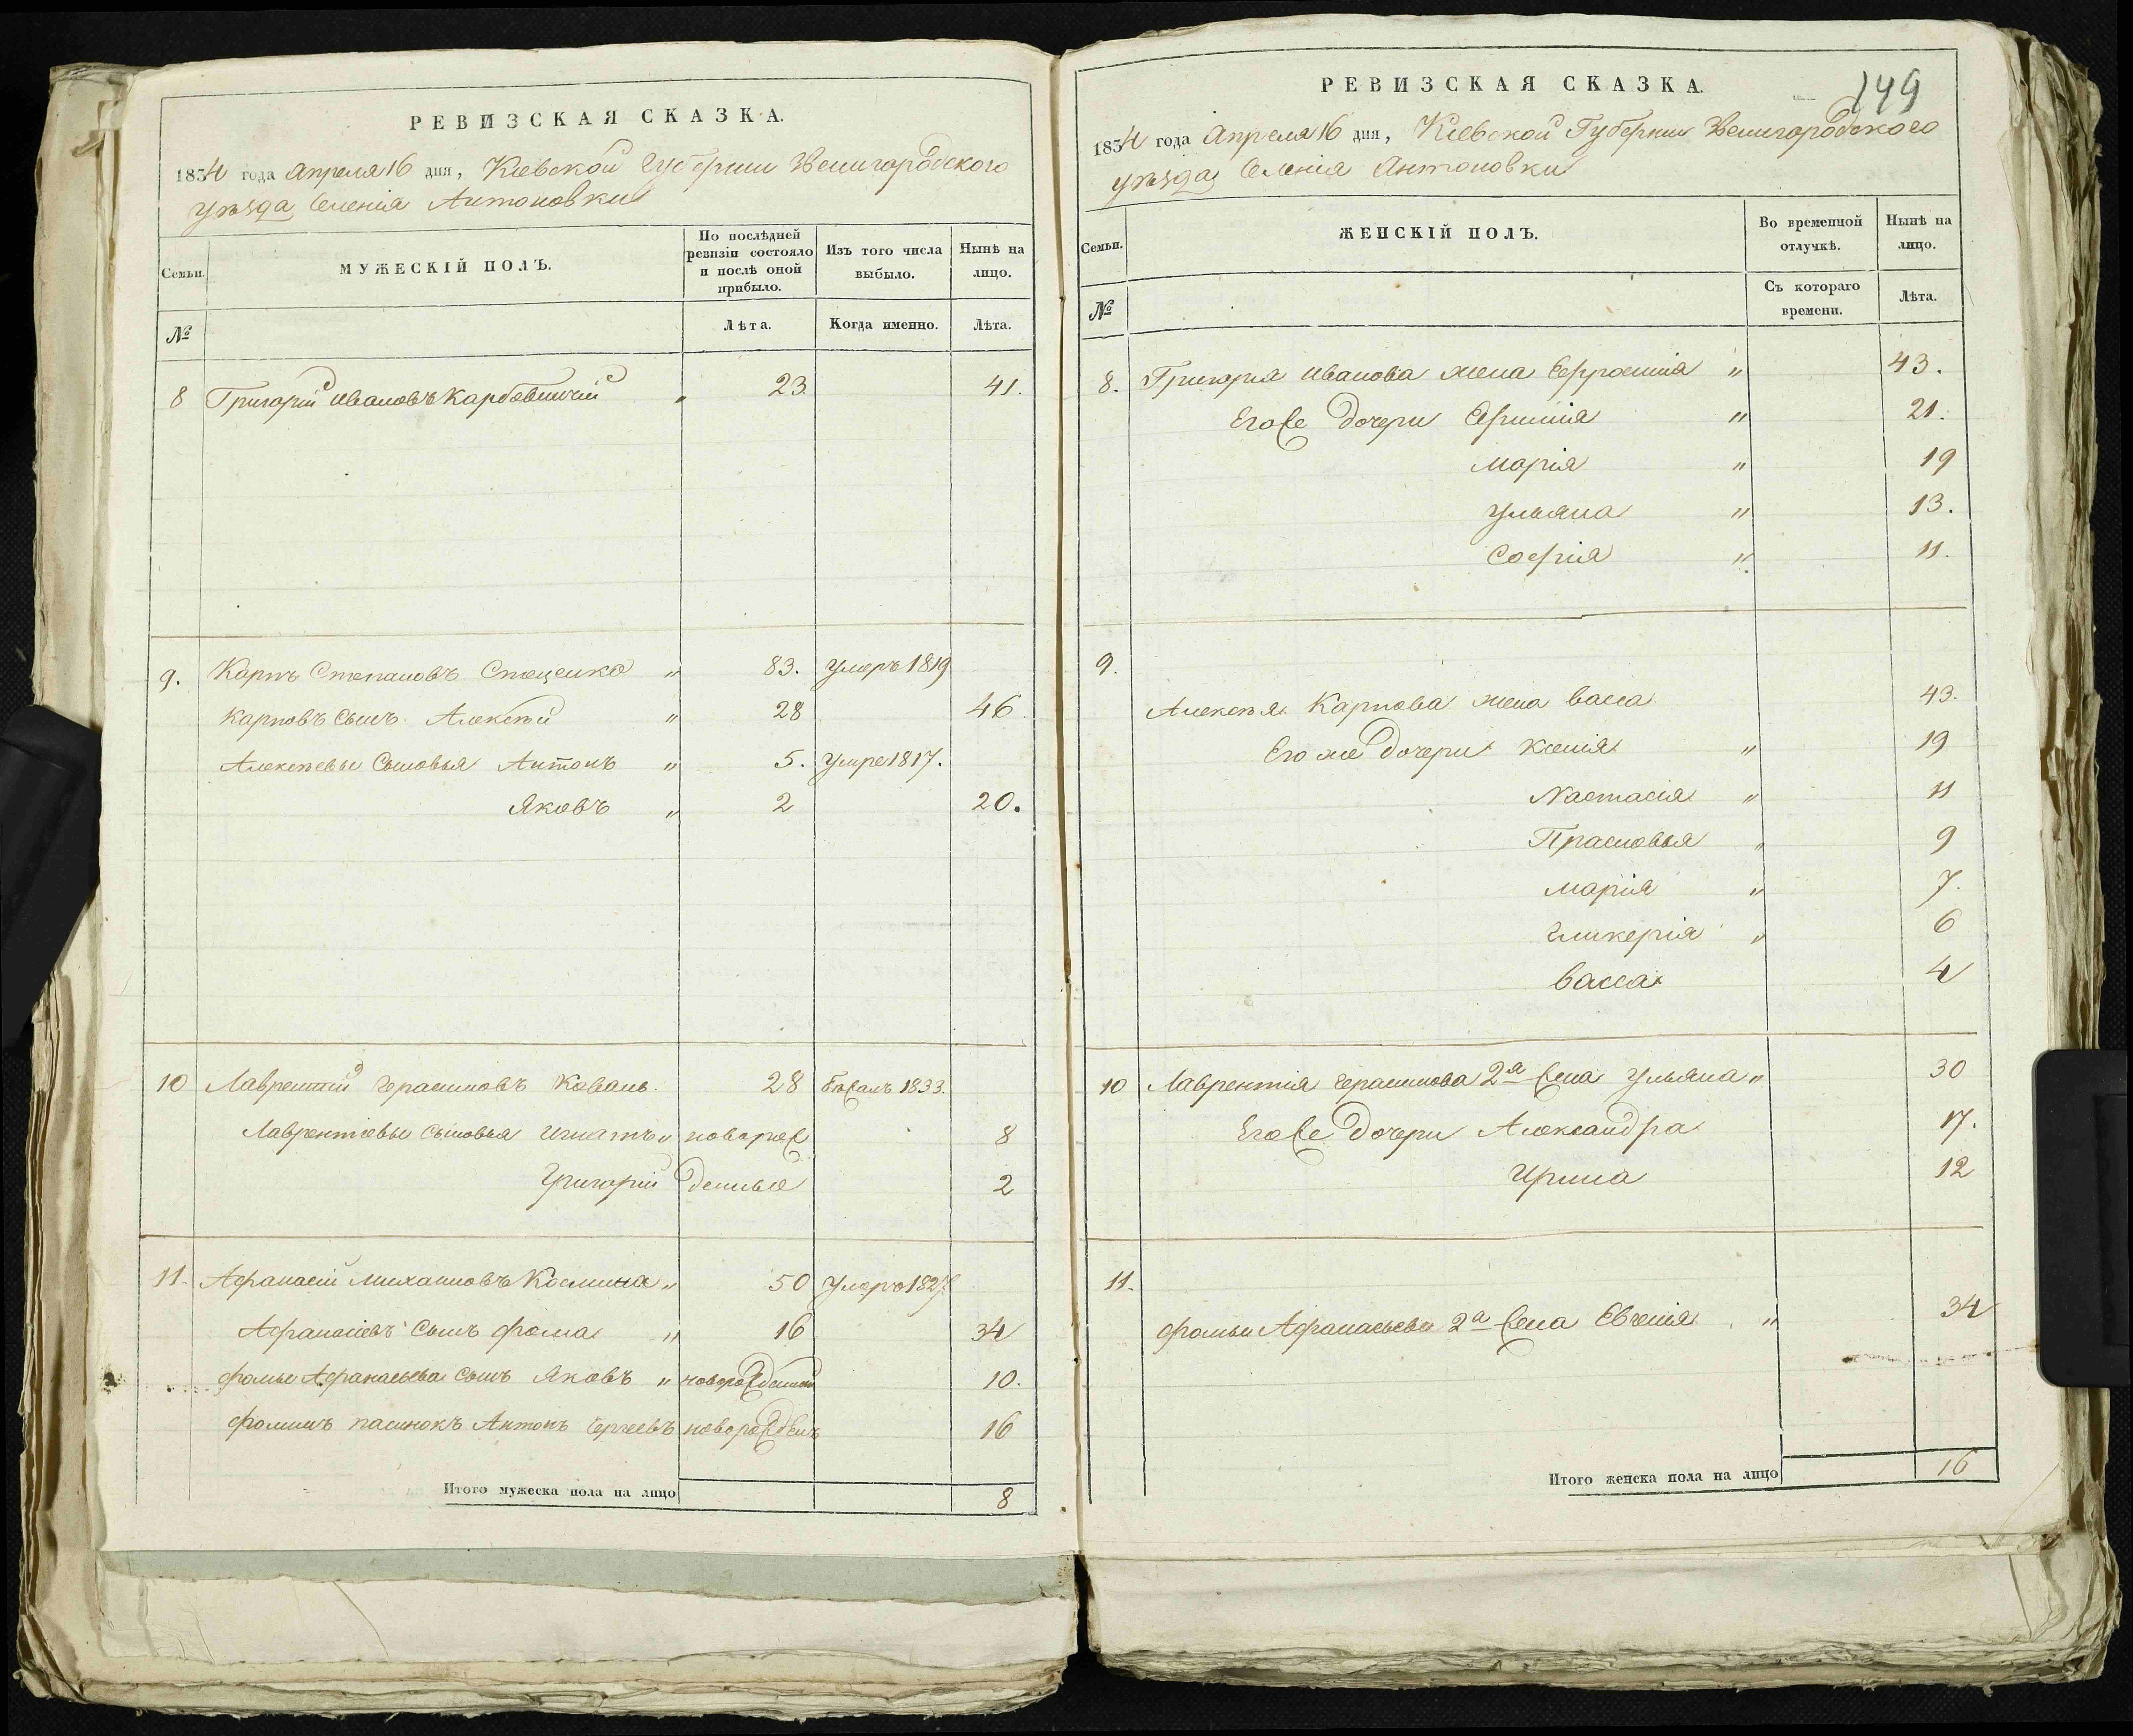 РЕВИЗСКАЯ СКАЗКА.
1834 года Апреля 16 дня, Кіевской Губерніи Звенигородского
уѣзда, Селенія Антоновки
Семьи.
МУЖЕСКІЙ ПОЛЪ.
По послѣдней ревизіи состояло и послѣ оной прибыло.
Изъ того числа выбыло.
Нынѣ на лицо.
№
Лѣта.
Когда именно.
Лѣта.
8 Григорій Ивановъ " 23. 41.
9. Карпъ Степановъ Стеценко " 83. умеръ 1819
Карповъ Сынъ Алексѣй " 28 46.
Алексѣевы Сыновья Антонъ " 5. умре 1817.
Яковъ " 2 20.
10 Лаврентій Герасимовъ Коваль 28 Бѣжалъ 1833.
Лаврентіевы Сыновья Игнатъ "новорож 8
Григорій денные 2
11. Афанасій Михаиловъ " 50 умеръ 1827.
Афанасіевъ Сынъ Фома " 16 34
Фомы Афанасьева Сынъ Яковъ " новорожденный 10.
Фоминъ пасинокъ Антонъ Сергеевъ новорожден 16
Итого мужеска пола на лицо 8
149
РЕВИЗСКАЯ СКАЗКА.
1834 года Апреля 16 дня, Кіевской Губерніи Звенигородского
уѣзда, Селенія Антоновки
Семьи.
ЖЕНСКІЙ ПОЛЪ.
Во временной отлучкѣ.
Нынѣ на лицо.
№
Съ котораго времени.
Лѣта.
8. Григорія Иванова жена Ефросинія " 43.
Егоже дочери Ефимія " 21.
Марія " 19
Ульяна " 13.
Софія " 11.
9.
Алексѣя Карпова жена Васса 43.
Его же дочери Ксенія " 19
Настасія " 11
Прасковья " 9
Марія " 7.
Гликерія " 6
Васса 4
10 Лаврентія Герасимова 2а жена Ульяна " 30
Егоже дочери Александра 17.
Ирина 12
11.
Фомы Афанасьева 2а жена Евгенія " 34
Итого женска пола на лицо 16